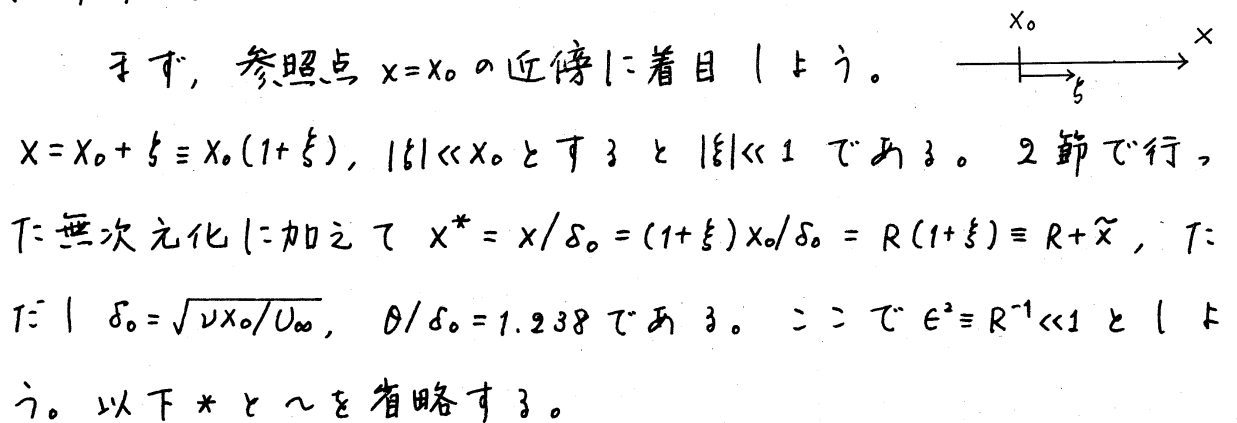 まず, 参照点 x=x₀ の近傍に着目しよう。
x₀
x
ζ
x=x₀+ζ≡x₀(1+ξ), |ζ|≪x₀ とすると |ξ|≪1 である。2節で行っ
た無次元化に加えて x*=x/δ₀=(1+ξ)x₀/δ₀=R(1+ξ)≡R+x̃, た
だし δ₀=√(νx₀/U∞), θ/δ₀=1.238である。ここで ϵ²≡R⁻¹≪1 としよ
う。以下 * と ~ を省略する。